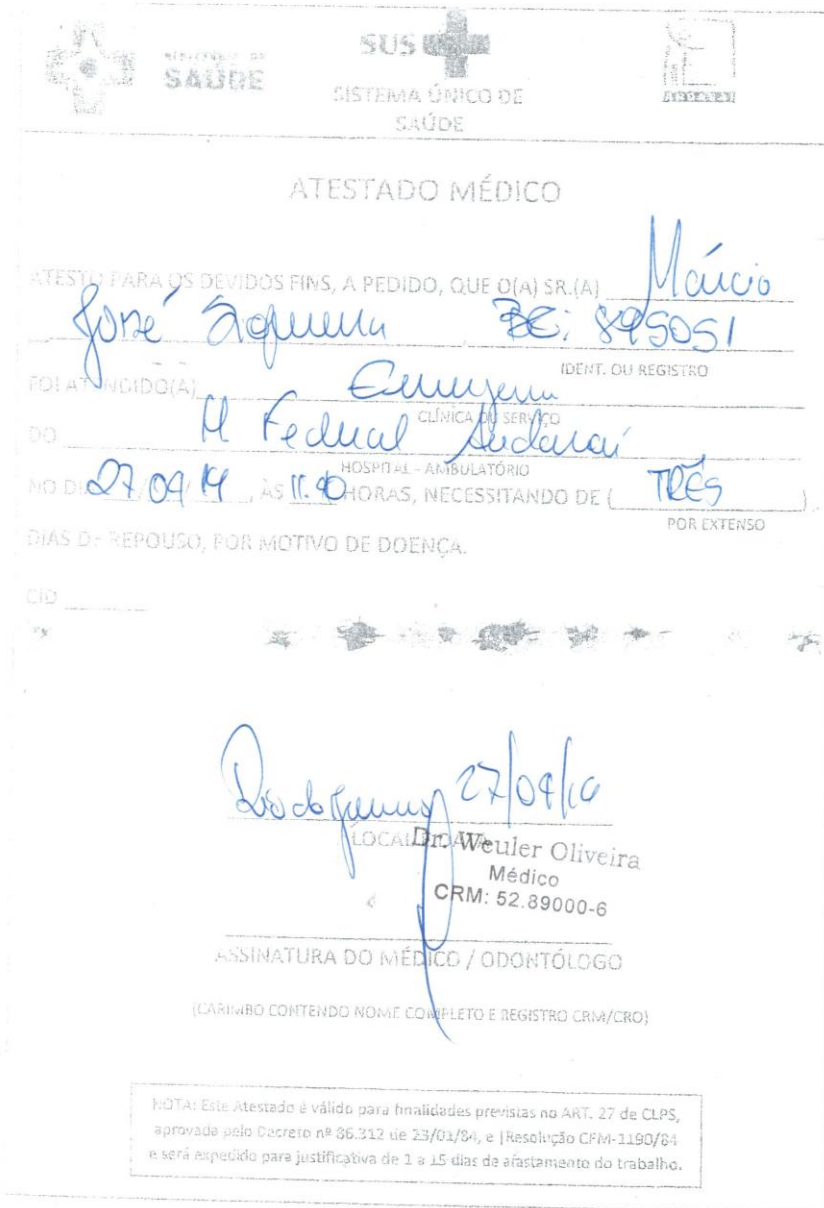 MINISTÉRIO DA
SAÚDE
SUS
SISTEMA ÚNICO DE
SAÚDE
ANDARAÍ
ATESTADO MÉDICO
ATESTO PARA OS DEVIDOS FINS, A PEDIDO, QUE O(A) SR.(A) Márcio
José BE: 895051
IDENT. OU REGISTRO
FOI ATENDIDO(A)
CLÍNICA OU SERVIÇO
DO H Federal Andaraí
HOSPITAL - AMBULATÓRIO
NO DIA 27/09/ , ÀS HORAS, NECESSITANDO DE ( TRÊS )
POR EXTENSO
DIAS DE REPOUSO, POR MOTIVO DE DOENÇA.
CID
Rio de Janeiro 27/09/
LOCAL E DATA
Dr. Weuler Oliveira
Médico
CRM: 52.89000-6
ASSINATURA DO MÉDICO / ODONTÓLOGO
(CARIMBO CONTENDO NOME COMPLETO E REGISTRO CRM/CRO)
NOTA: Este Atestado é válido para finalidades previstas no ART. 27 de CLPS,
aprovada pelo Decreto nº 86.312 de 23/01/84, e |Resolução CFM-1190/84
e será expedido para justificativa de 1 a 15 dias de afastamento do trabalho.